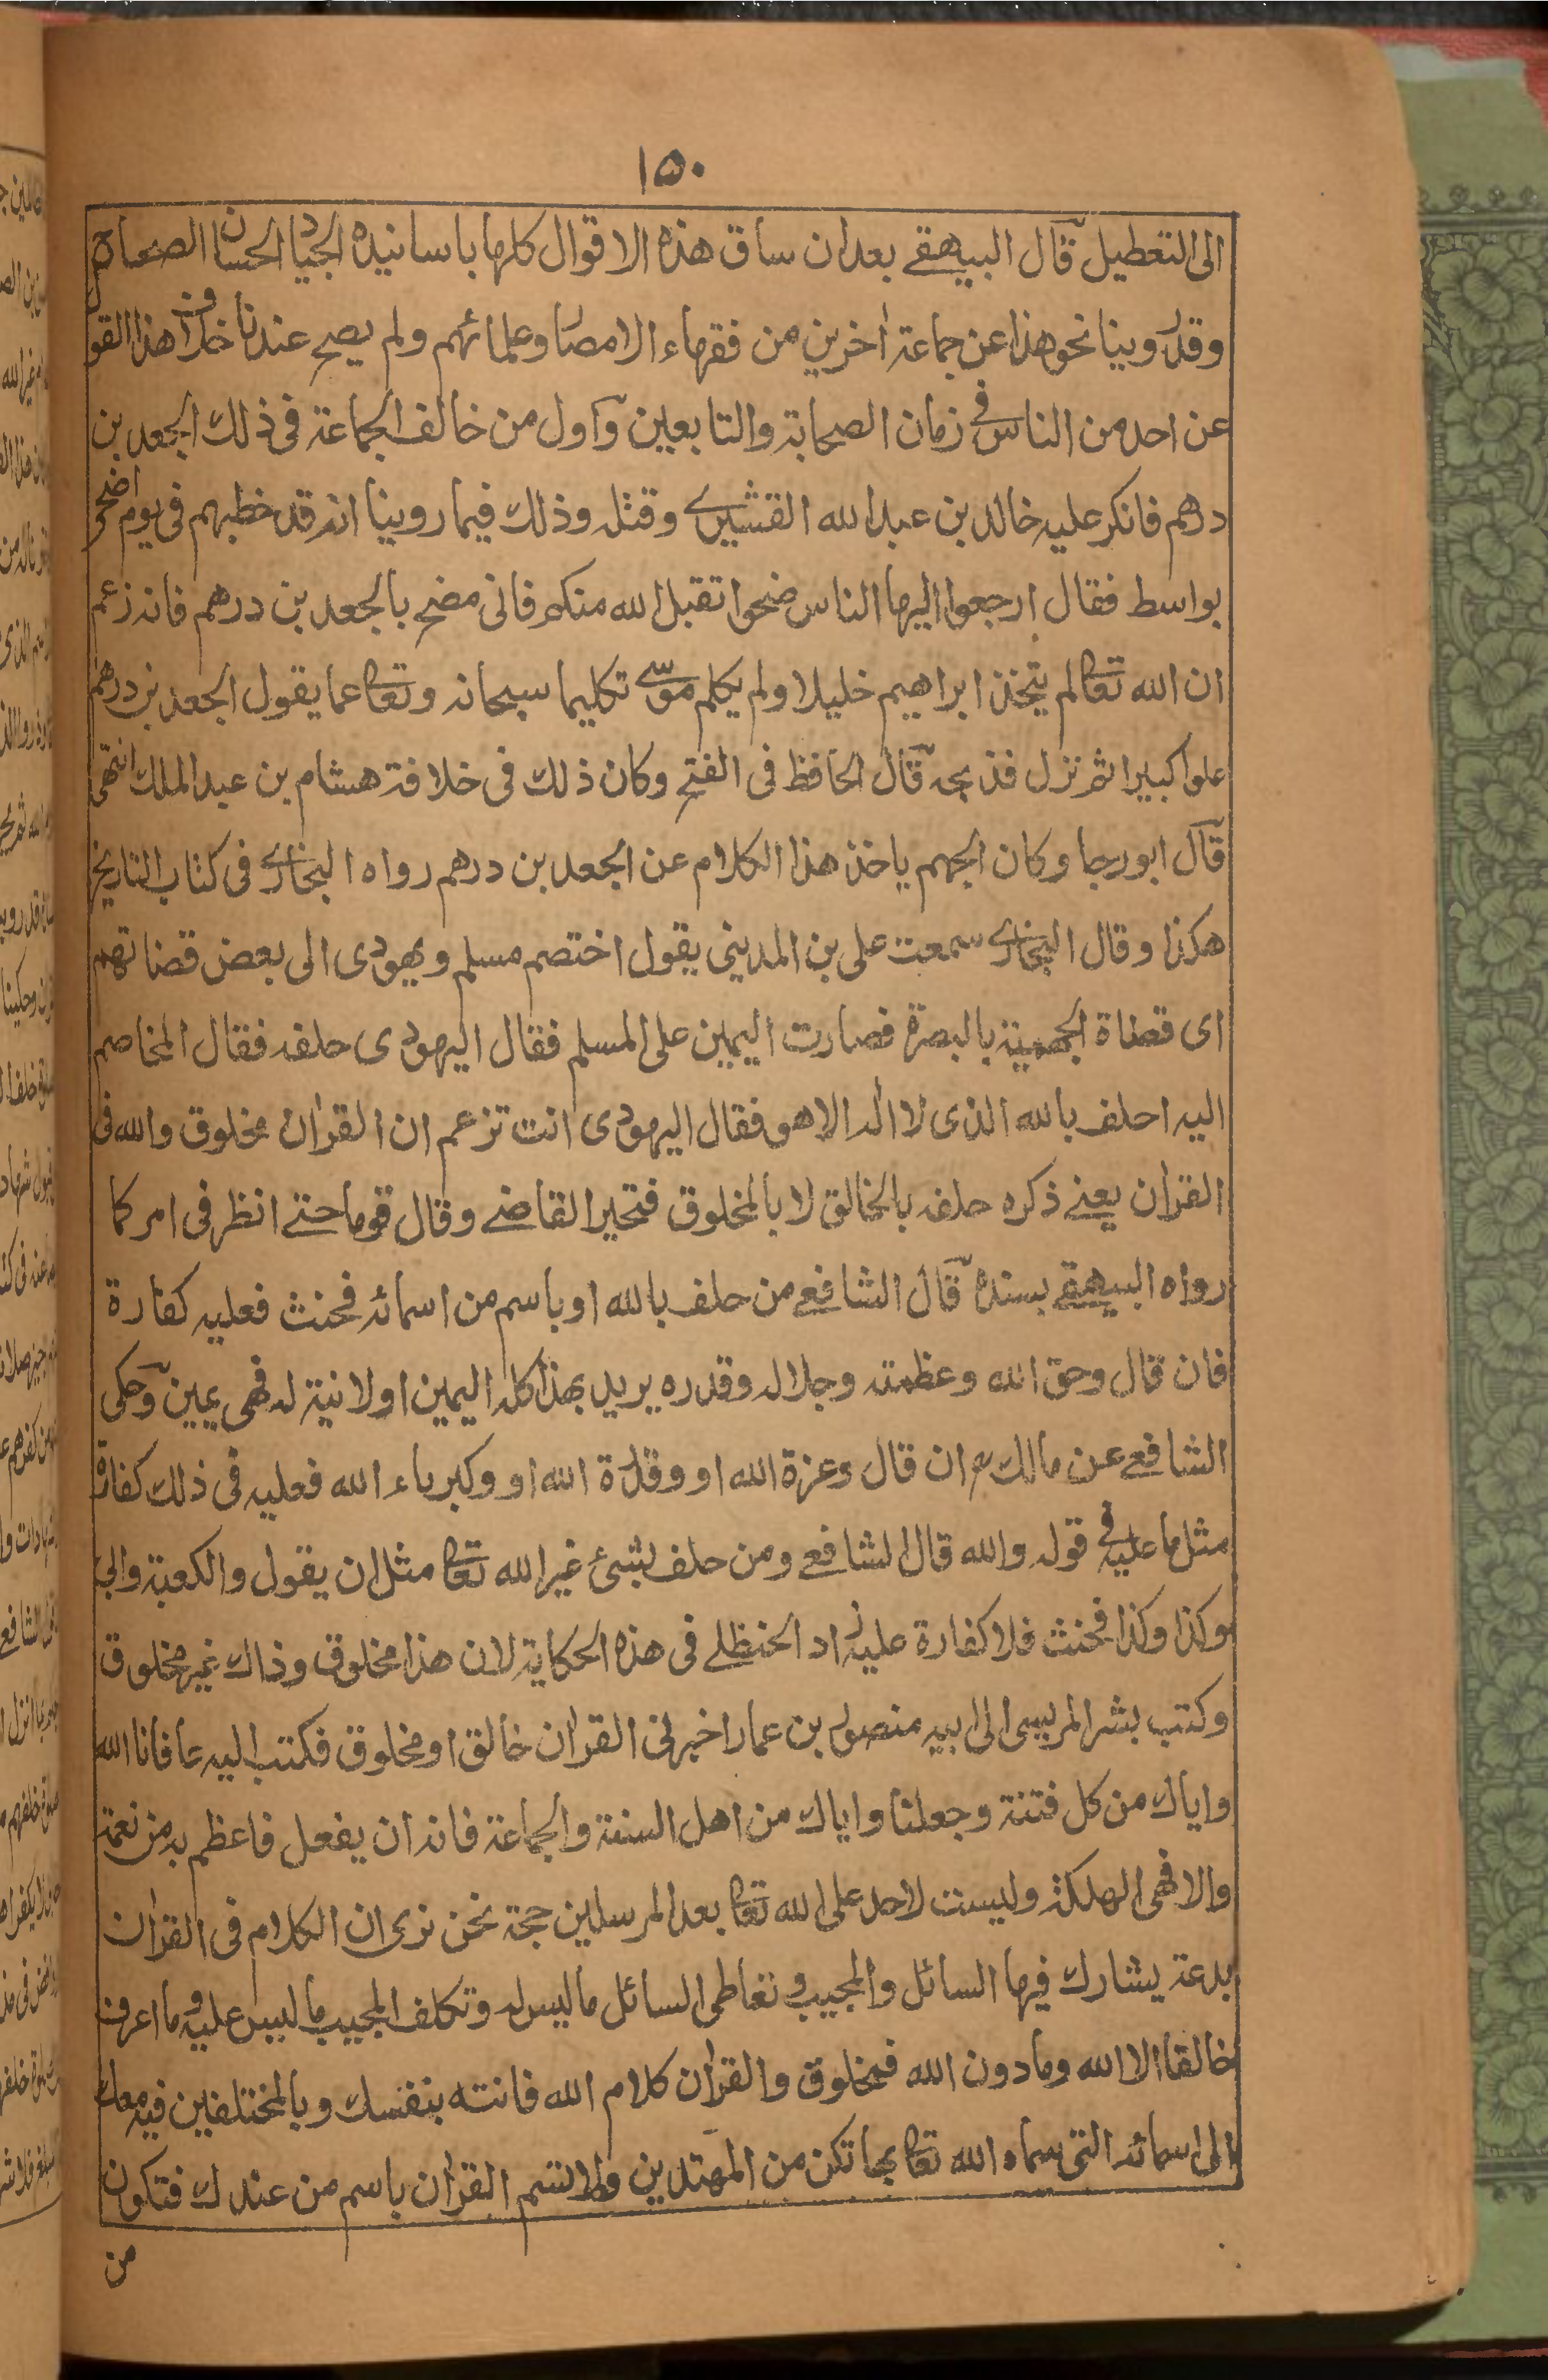 ١٥٠
الى التعطيل قال البيهقے بعد ان ساق هذه الاقوال كلها باسانيده الجياد الحسان الصحاح
وقد روينا نحو هذا عن جماعة اٰخرين من فقهاء الامصار وعلمائهم ولم يصح عندنا خلاف هذا القول
عن احد من الناس فے زمان الصحابة والتابعين واول من خالف الجماعة فى ذلك الجعد بن
درهم فانكر عليه خالد بن عبد الله القشيرے وقتله وذلك فيما روينا انه قد خطبهم فى يوم اضحى
بواسط فقال ارجعوا ايها الناس ضحوا تقبل الله منكم فانى مضح بالجعد بن درهم فانه زعم
ان الله تعالٰى لم يتخذ ابراهيم خليلا ولم يكلم موسٰے تكليما سبحانه وتعالٰى عما يقول الجعد بن درهم
علوا كبيرا ثم نزل فذبحه قال الحافظ فى الفتح وكان ذلك فى خلافة هشام بن عبد الملك انتهى
قال ابو رجا وكان الجهم ياخذ هذا الكلام عن الجعد بن درهم رواه البخارے فى كتاب التاريخ
هكذا وقال البخارے سمعت على بن المدينى يقول اختصم مسلم ويهودى الى بعض قضاتهم
اى قضاة الجهمية بالبصرة فصارت اليمين على المسلم فقال اليهودى حلفه فقال المخاصم
اليه احلف بالله الذى لا اله الا هو فقال اليهودى انت تزعم ان القراٰن مخلوق والله فى
القراٰن يعنے ذكره حلفه بالخالق لا بالمخلوق فتحير القاضے وقال قوما حتے انظر فى امركما
رواه البيهقے بسنده قال الشافعے من حلف بالله او باسم من اسمائه فحنث فعليه كفارة
فان قال وحق الله وعظمته وجلاله وقدره يريد بهذا كله اليمين او لا نية له فهى يمين وحكى
الشافعے عن مالك ان قال وعزة الله او وقدرة الله او وكبرياء الله فعليه فى ذلك كفارة
مثل ما عليه فے قوله والله قال الشافعے ومن حلف بشئ غير الله تعالٰى مثل ان يقول والكعبة وابى
وكذا وكذا فحنث فلا كفارة عليه زاد الحنظلے فى هذه الحكاية لان هذا مخلوق وذاك غير مخلوق
وكتب بشر المريسى الى ابيه منصور بن عمار اخبرنى القراٰن خالق او مخلوق فكتب اليه عافانا الله
واياك من كل فتنة وجعلنا واياك من اهل السنة والجماعة فانه ان يفعل فاعظم به من نعمة
والا فهى الهلكة وليست لاحد على الله تعالٰى بعد المرسلين حجة نحن نرى ان الكلام فى القراٰن
بدعة يشارك فيها السائل والمجيب وتعاطى السائل ما ليس له وتكلف المجيب ما ليس عليه وما اعرف
خالقا الا الله وما دون الله فمخلوق والقراٰن كلام الله فانته بنفسك وبالمختلفين فيه معك
الى اسمائه التى سماه الله تعالٰى بها تكن من المهتدين ولا تسم القراٰن باسم من عندك فتكون
من